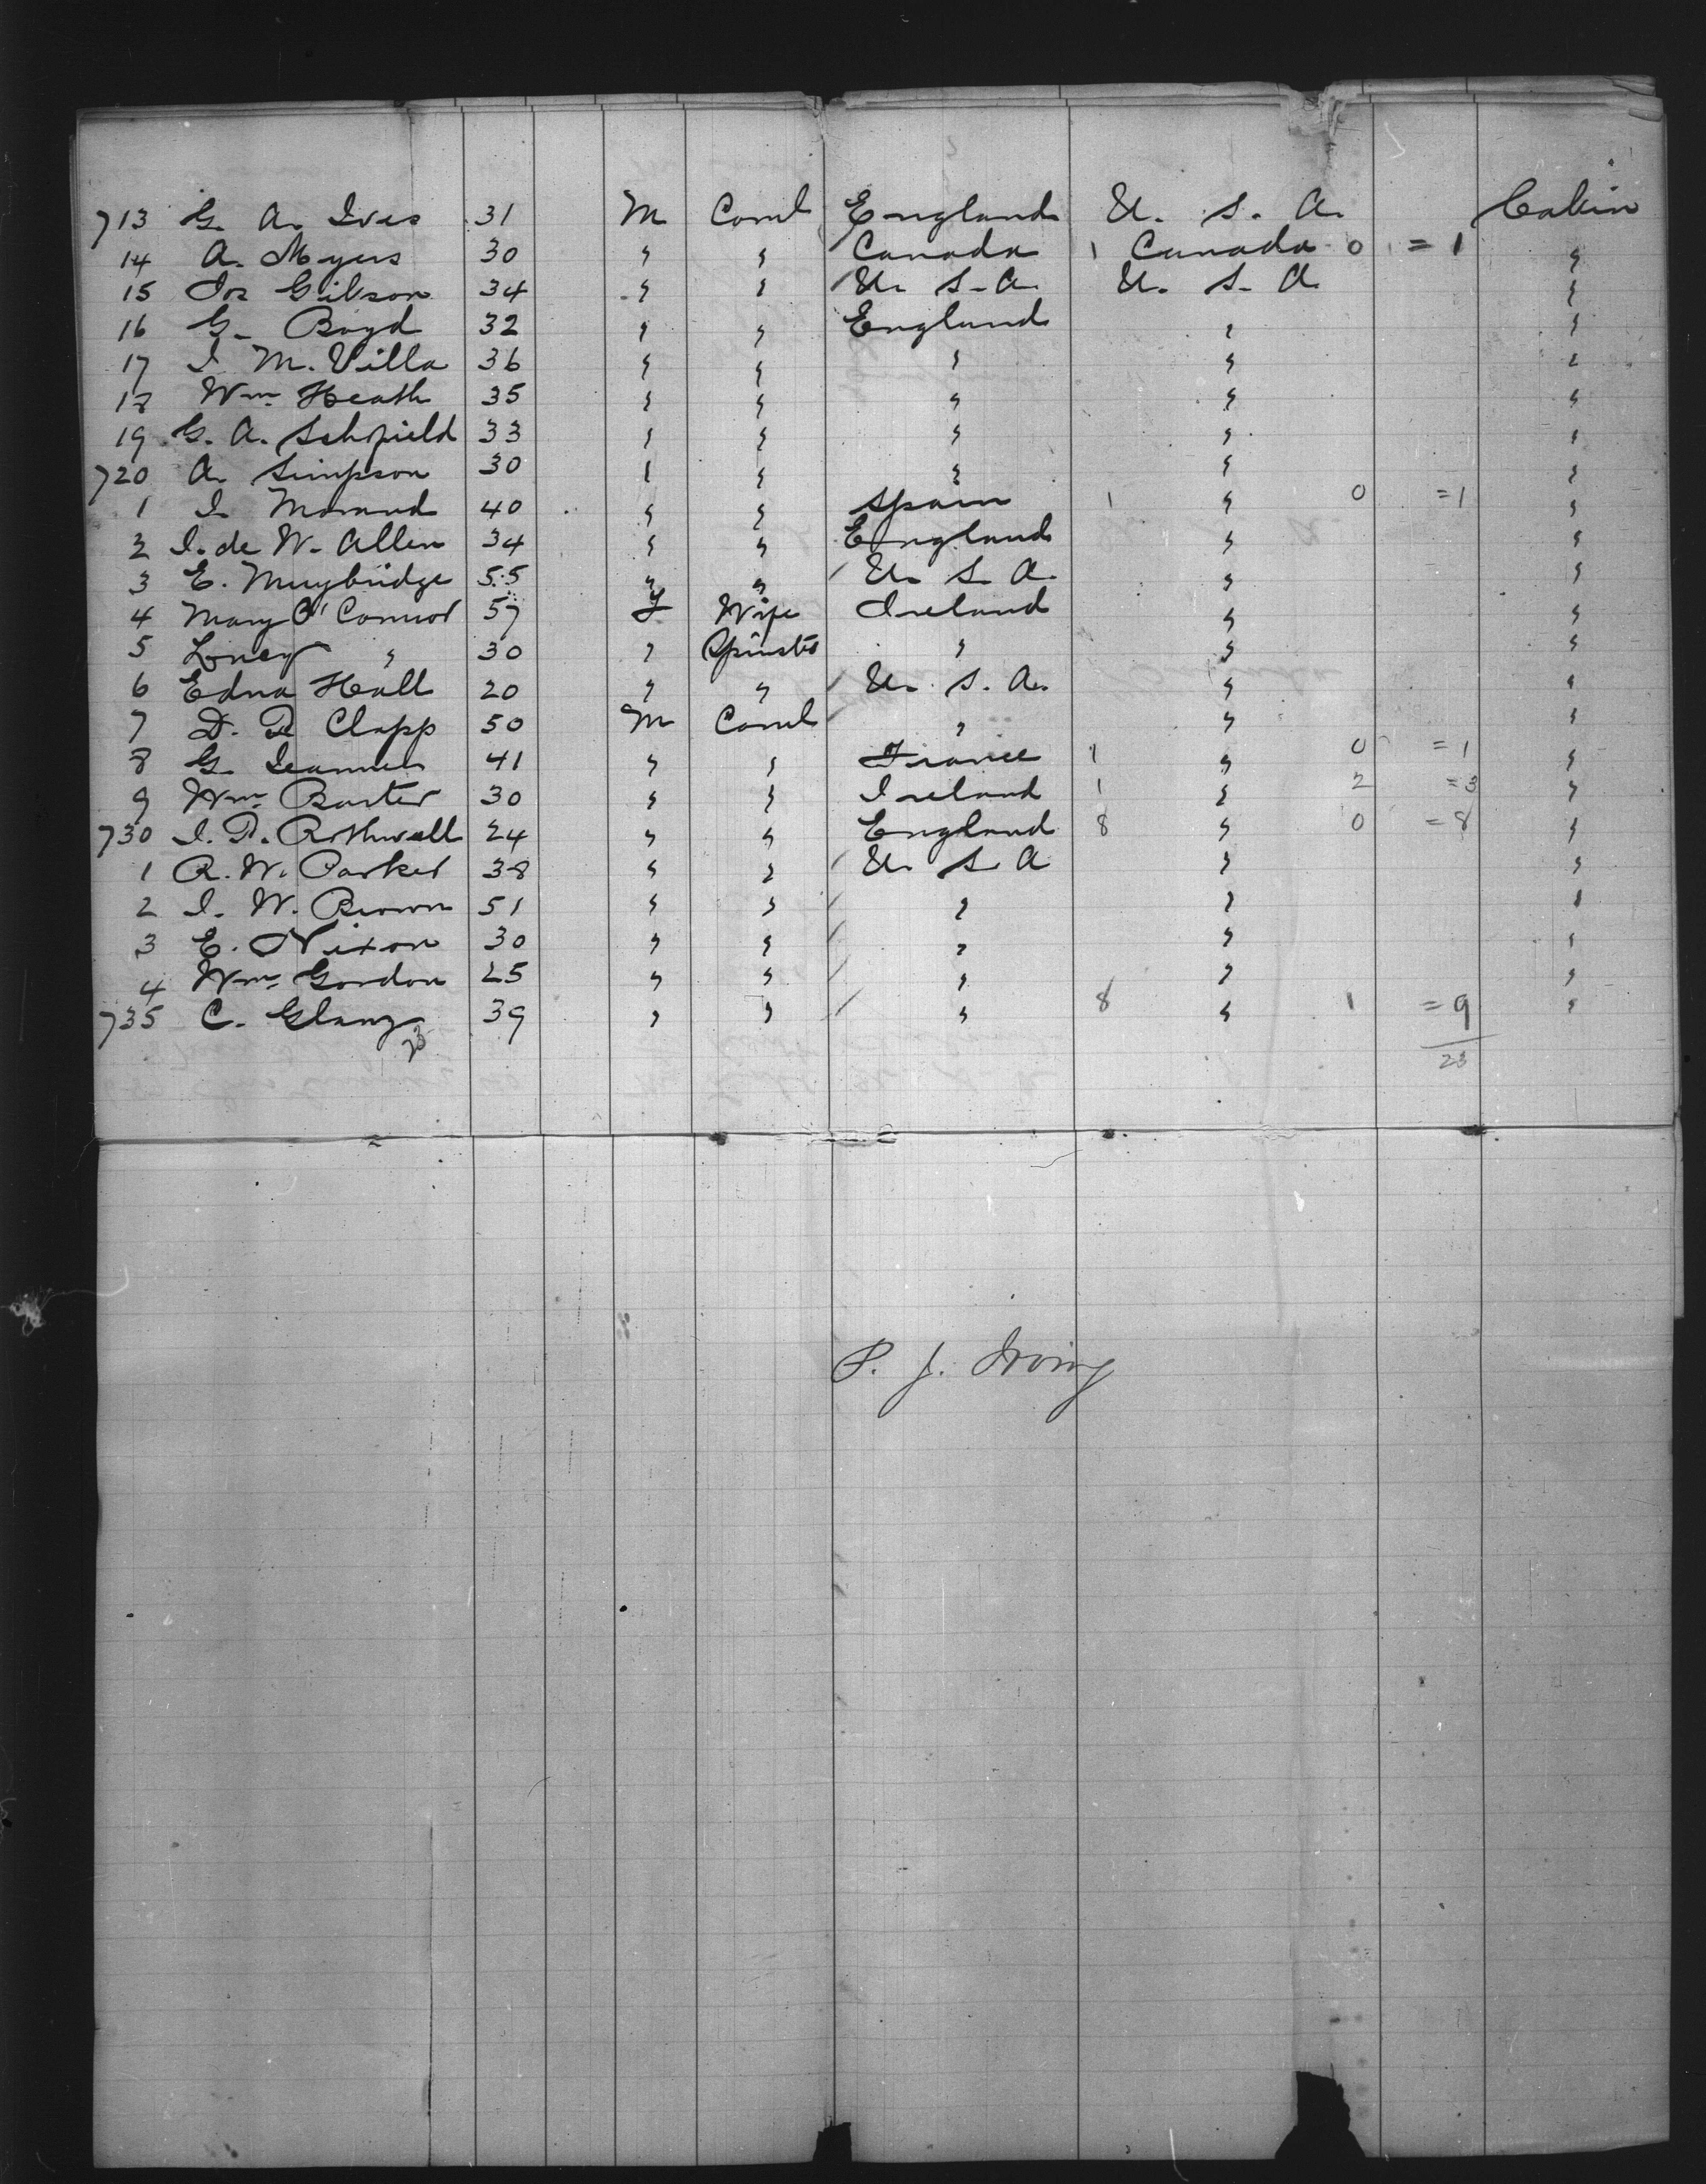 713 G. A. Ives 31 M Coml England U. S. A. Cabin
14 A. Myers 30 " " Canada 1 Canada 0 = 1 "
15 Jos Gibson 34 " " U. S. A. U. S. A "
16 G. Boyd 32 " " England " "
17 J. M. Villa 36 " " " " "
18 Wm Heath 35 " " " " "
19 G. A. Schofield 33 " " " " "
720 A. Simpson 30 " " " " "
1 J. 40 " " Spain 1 " 0 = 1 "
2 J. de W. Allen 34 " " England " "
3 E. Muybridge 55 " " / U. S. A. " "
4 Mary O'Connor 57 F Wife Ireland " "
5 " 30 " Spinster " " "
6 Edna Hall 20 " " / U. S. A. " "
7 D. P. Clapp 50 M Coml / " " "
8 G. 41 " " France 1 " 0 = 1 "
9 Wm Baxter 30 " " Ireland 1 " 2 = 3 "
730 J. P. Rothwell 24 " " England 8 " 0 = 8 "
1 R. W. Parker 38 " " / U. S. A " "
2 J. W. Brown 51 " " / " " "
3 E. Nixon 30 " " / " " "
4 Wm Gordon 25 " " / " " "
735 C. Glanz 39 " " / " 8 " 1 = 9 "
23 23
P. J. Irving